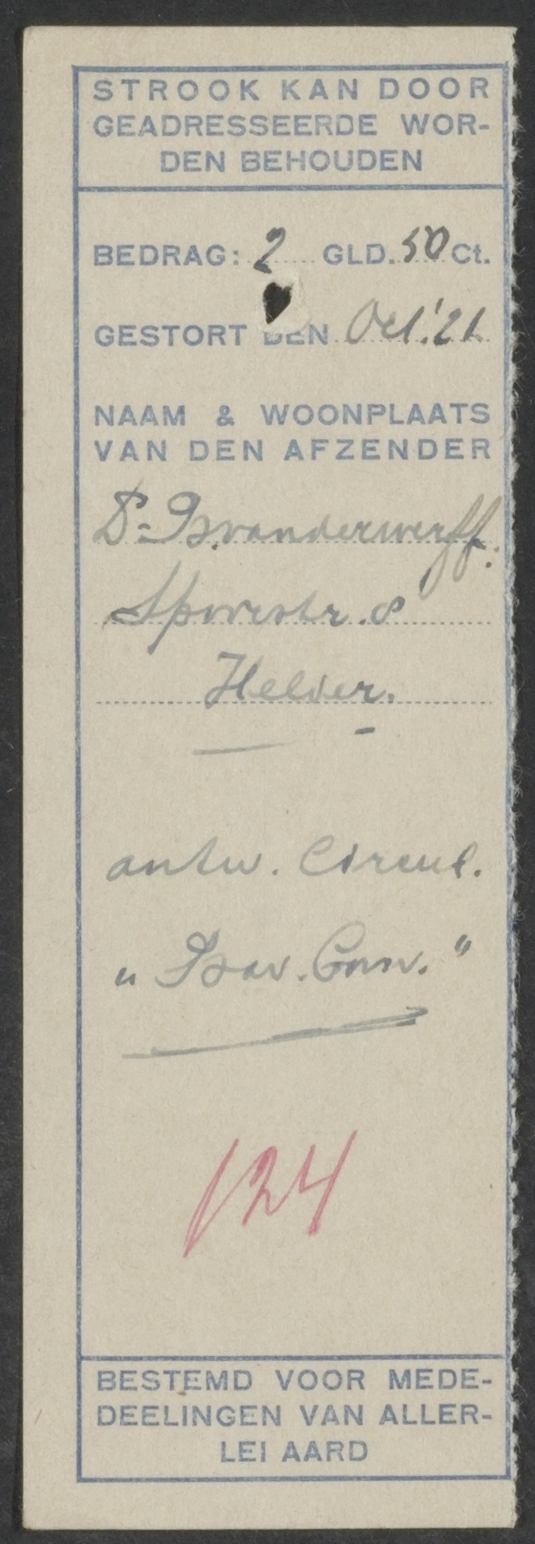 STROOK KAN DOOR
GEADRESSEERDE WOR-
DEN BEHOUDEN
BEDRAG: 2 GLD. 50 Ct.
GESTORT DEN Oct. '21
NAAM & WOONPLAATS
VAN DEN AFZENDER
Helder.
antw. Circul.
124
BESTEMD VOOR MEDE-
DEELINGEN VAN ALLER-
LEI AARD